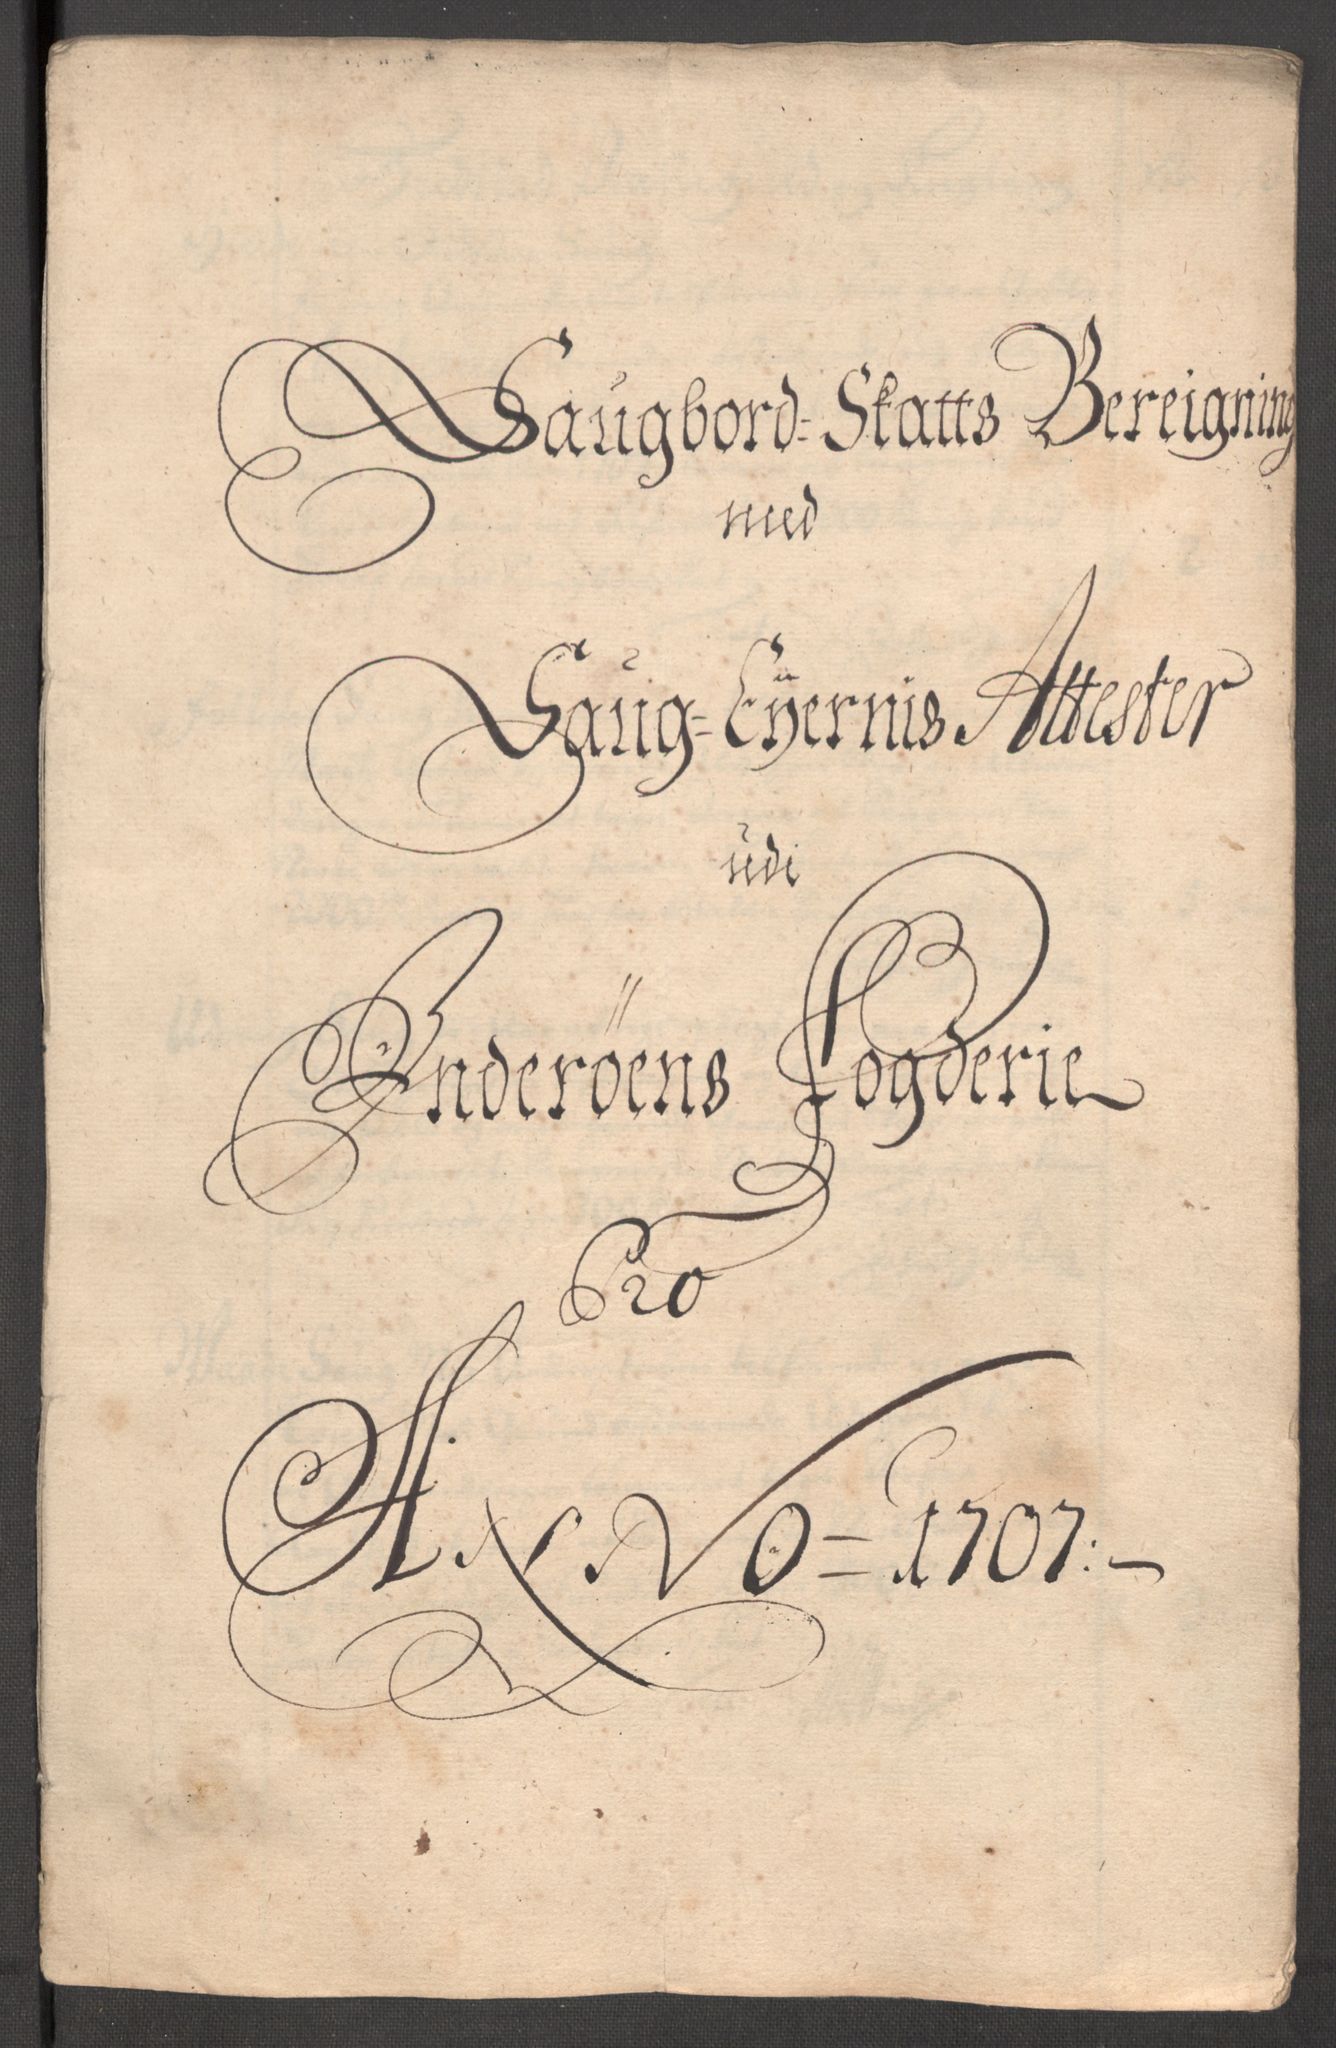 Saugbord-Skatts Bereigning
med
Saug-Eÿernis Attester
udi
Inderöens Fogderie
Pro
ANNO=1707:-